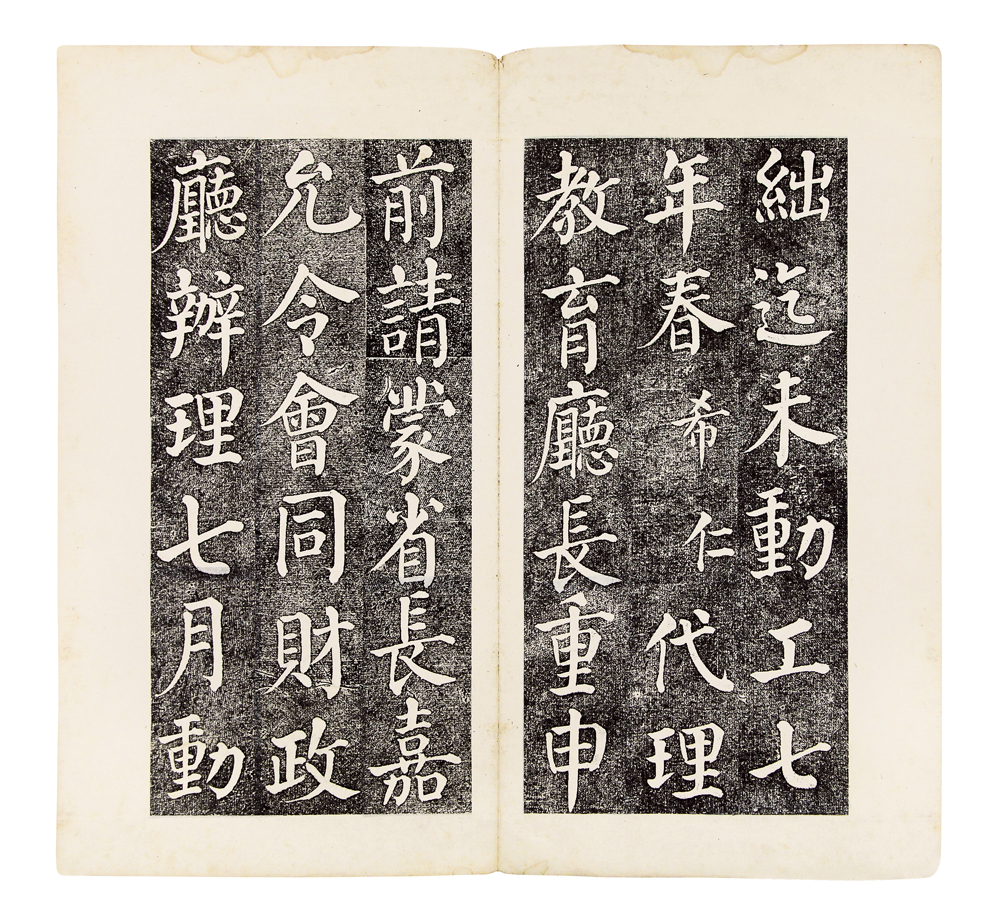 絀迄未動工七
年春希仁代理
教育廳長重申
前請蒙省長嘉
允令會同財政
廳辦理七月動